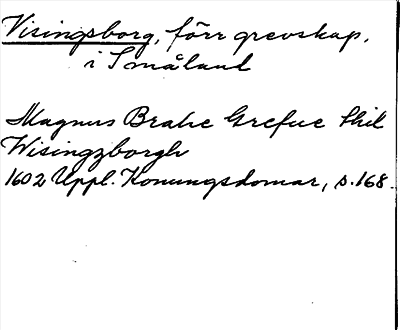 Visingsborg, förr grevskap,
i Småland
Magnus Brahe Grefue thil
Wisingzborgh
1602 Uppl. Konungsdomar, s. 168.